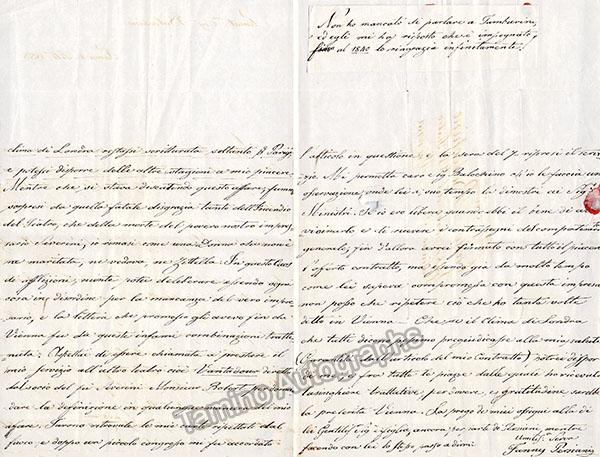 Non ho mancato di parlare a Tamburini,
ed egli mi ha risposto che è impegnato,
fino al 1840 lo ringrazia infinitamente.
clima di Londra restassi scritturata soltanto p. Parigi
e potessi disporre delle altre stagioni a mio piacere.
Mentre che si stava discutendo questo affare, fummo
sorpresi da quella fatale disgrazia tanto dell'Incendio
del Teatro, che della morte del povero nostro impre-
sario Severini, io rimasi come una Donna che non è
ne maritata, ne vedova, ne Zittella. In questo Caos
di afflizioni, niente potei deliberare essendo ogni
cosa in disordine per la mancanza del vero impre-
sario, e la lettera che promisi gli avevo fin da
Vienna fu da queste infami combinazioni tratte-
nuta. Aspettai di essere chiamata a prestare il
mio servizio all'altro teatro cioè Vantadour
dal socio del fù Severini Monsieur Robert
dare la definizione in qualunque maniera del mio
affare. Furono
fuoco, e doppo un piccolo congresso mi fu accordato
l'articolo in questione e la sera del 7 ripresi il servi-
zio. Mi permetta caro e Sig. Balochino ch'io le faccia un
osservazione, onde lei a suo tempo la dimostri ai Sig.
Ministri. Se io ero libera quando ebbi il bene di av-
vicinarlo e di ricevere i contrasegni del compatimento
generale, fin d'allora avrei firmato con tutto il piacere
l'offerto contratto, ma essendo già da molto tempo
come lei sapeva compromessa con questa impresa
non posso che ripetere ciò che ho tante volte
detto in Vienna. Che se il Clima di Londra
per tutti diceva essere pregiudicasse alla mia salute
(in qualità dell'articolo del mio Contratto) potrei dispor-
fra tutte le piazze dalle quali
lusinghiere trattative per avere, e gratitudine sarebbe
la prescelta Vienna. La prego de' miei ossequi alla di
lei Gentiliss. Sig. e figlia, ancora per parte di Persiani, mentre
facendo con lei lo stesso, passo a dirmi
Umiliss. Serva
Fanny Persiani
Tamino Autographs